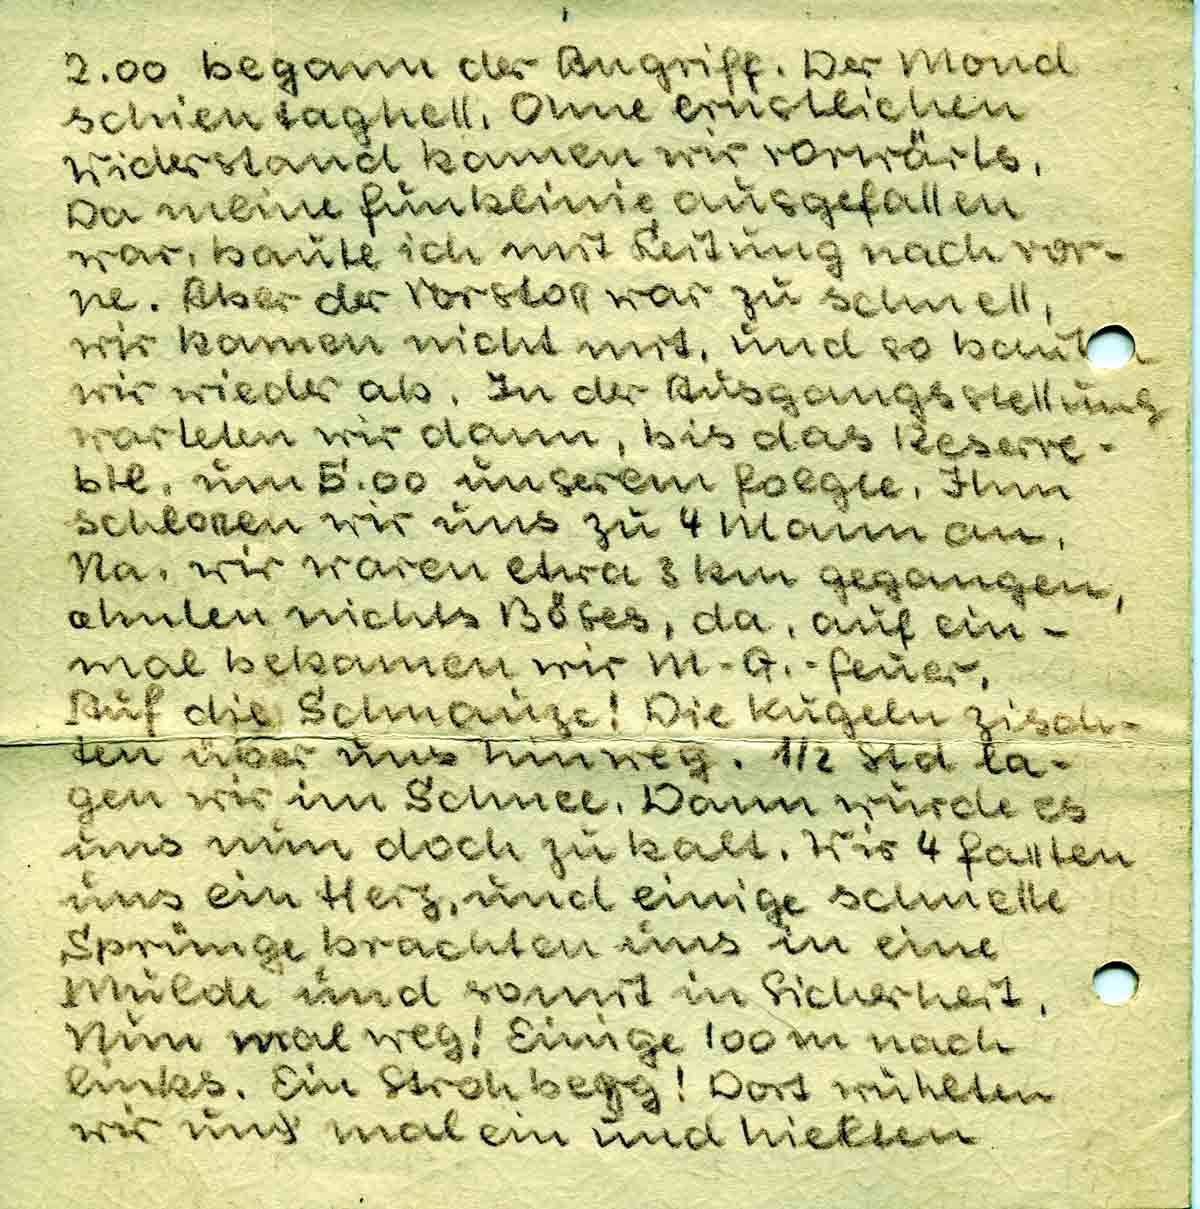 2.00 begann der Angriff. Der Mond
schien taghell. Ohne ernstlichen
Widerstand kamen wir vorwärts.
Da meine Funklinie ausgefallen
war, baute ich mit Leitung nach vor-
ne. Aber der Vorstoß war zu schnell,
wir kamen nicht mit, und so bauten
wir wieder ab. In der Ausgangsstellung
warteten wir dann, bis das Reserve-
btl. um 5.00 unserem folgte. Ihm
schloßen wir uns zu 4 Mann an.
Na, wir waren etwa 3 km gegangen,
ahnten nichts Böses, da, auf ein-
mal bekamen wir M.-G.-Feuer.
Auf die Schnauze! Die Kugeln zisch-
ten über uns hinweg. 1/2 Std la-
gen wir im Schnee. Dann wurde es
uns nun doch zu kalt. Wir 4 faßten
uns ein Herz, und einige schnelle
Sprünge brachten uns in eine
Mulde und somit in Sicherheit.
Nun mal weg! Einige 100 m nach
links. Ein Strohberg! Dort wühlten
wir uns mal ein und hielten